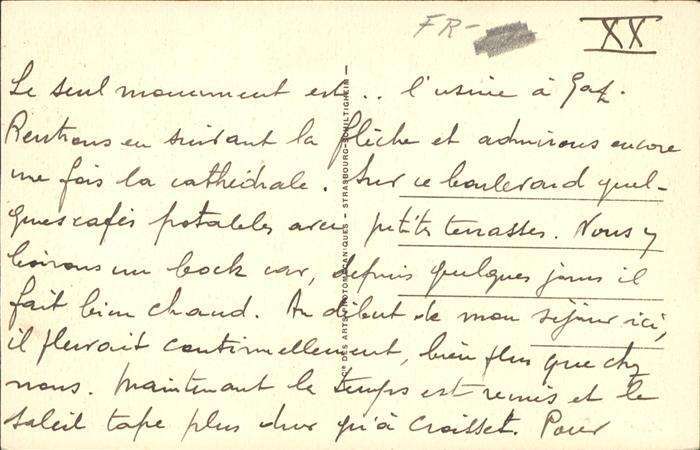 FR-
XX
Le seul monument est .. l'usine à Gaz.
Rentrons en suivant la flèche et admirons encore
une fois la cathédrale. Sur ce boulevard quel-
ques cafés potables avec petites terrasses. Nous y
boirons un bock car, depuis quelques jours il
fait bien chaud. Au début de mon séjour ici,
il pleuvait continuellement, bien plus que chez
nous. Maintenant le temps est remis et le
soleil tape plus dur qu'à Croisset. Pour
Cie DES ARTS PHOTOMÉCANIQUES — STRASBOURG-SCHILTIGHEIM —